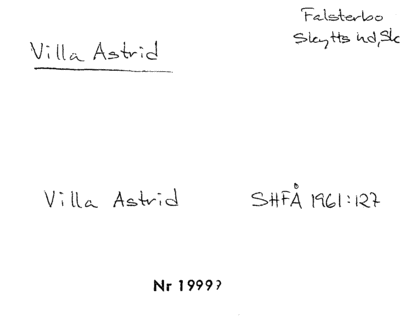 Falsterbo
Skytts hd, Sk
Villa Astrid
Villa Astrid SHFÅ 1961:127
Nr 1999?